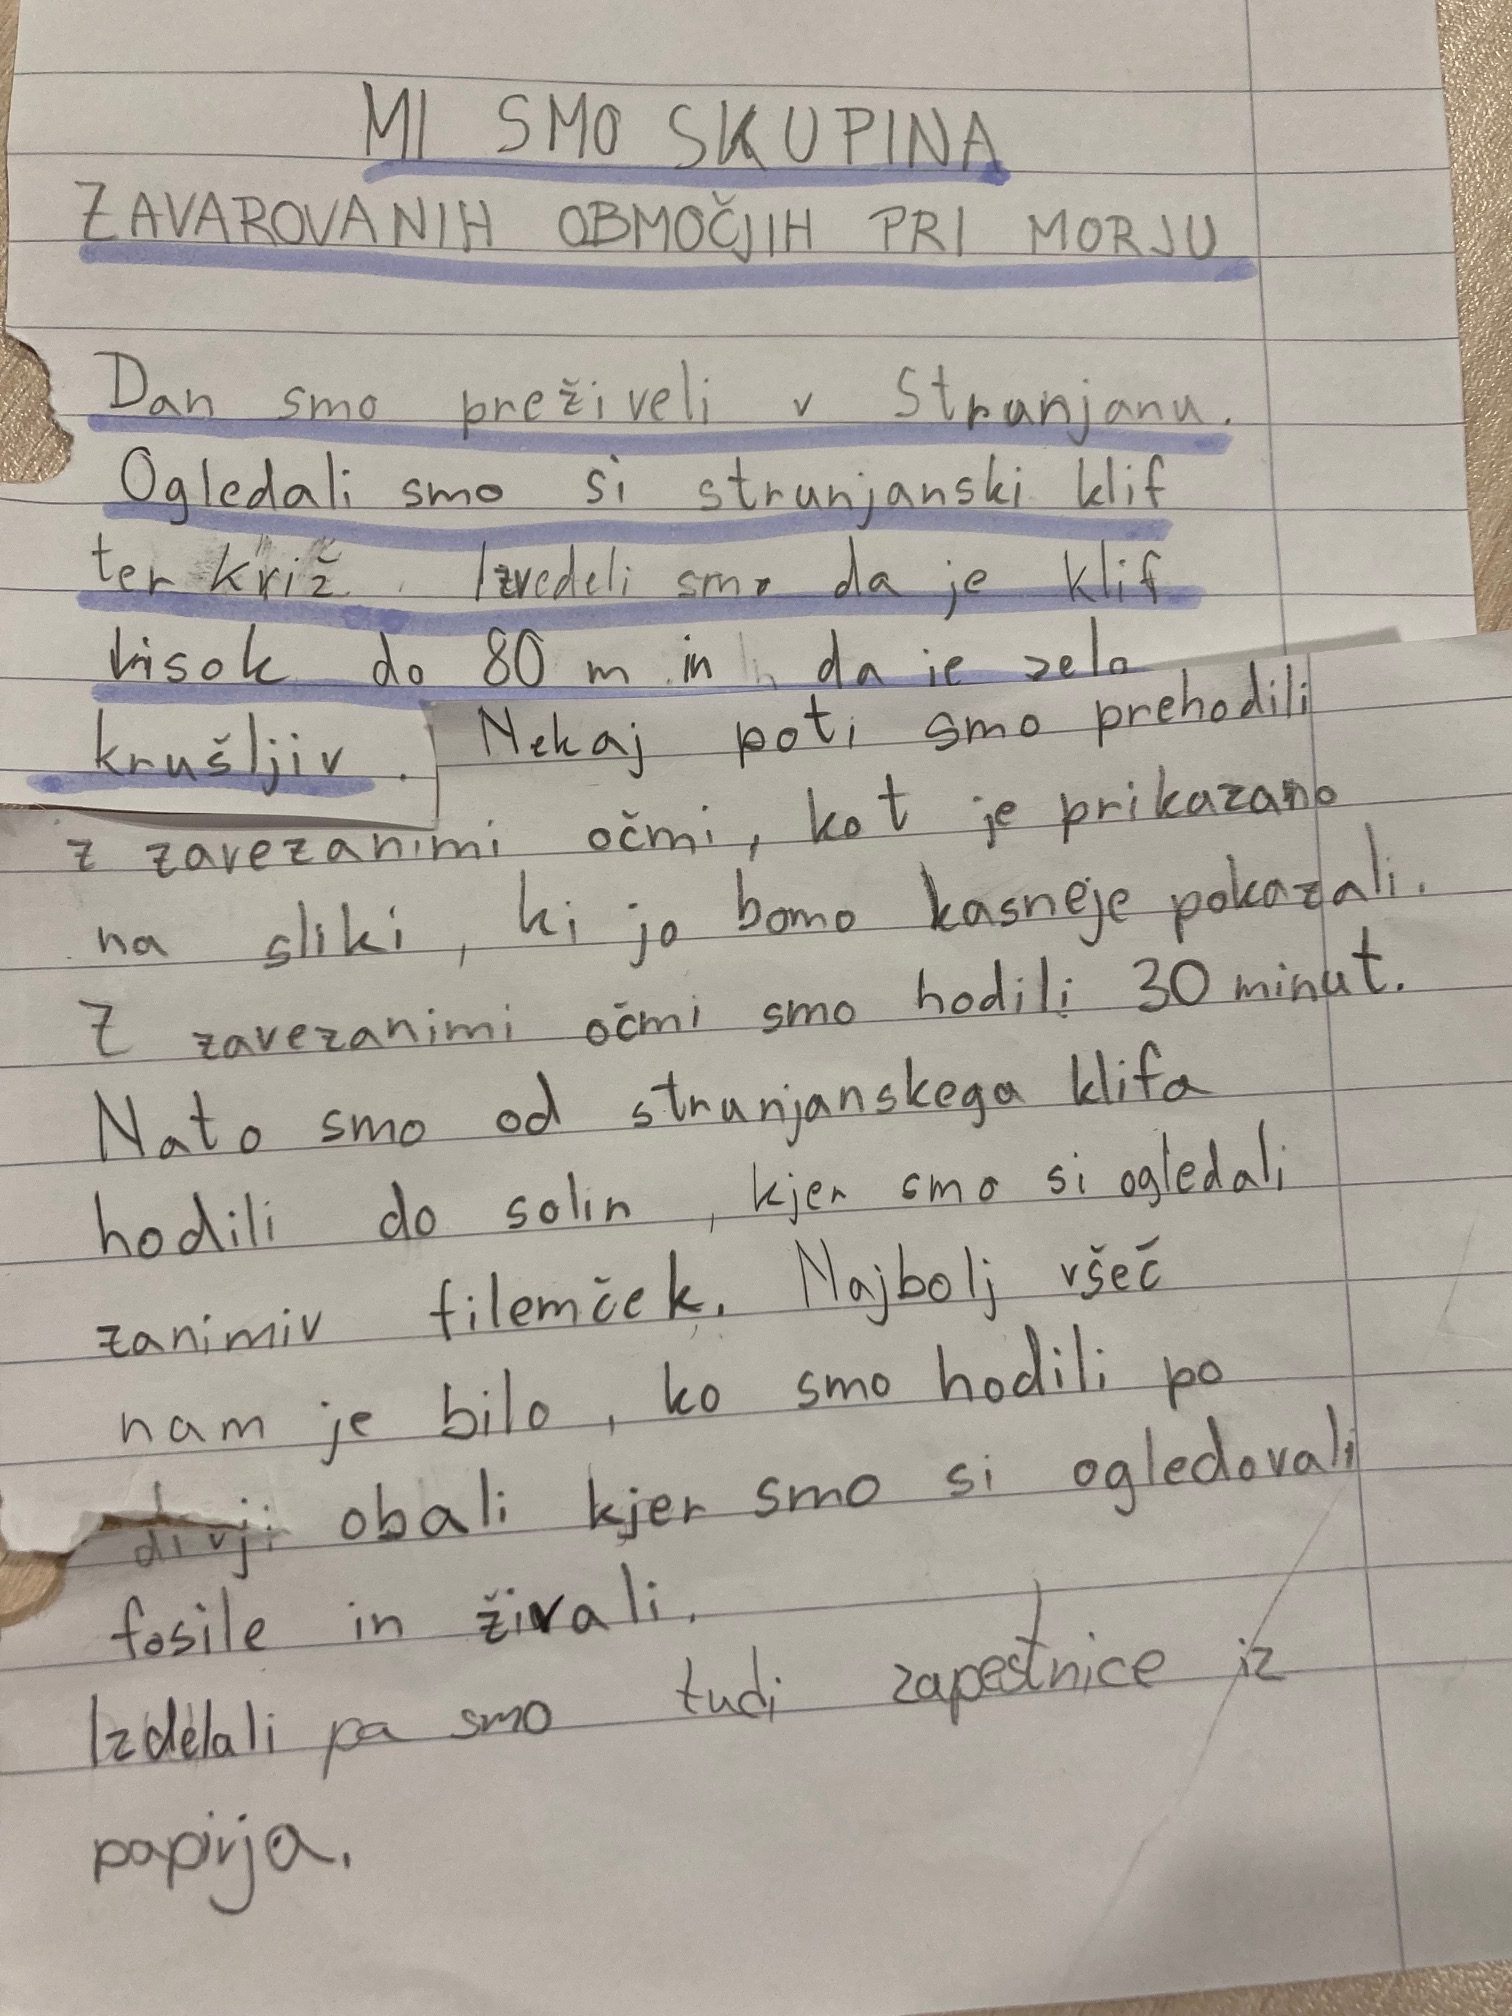 MI SMO SKUPINA
ZAVAROVANIH OBMOČJIH PRI MORJU
Dan smo preživeli v Strunjanu.
Ogledali smo si strunjanski klif
ter križ. Izvedeli smo da je klif
visok do 80 m in da je zelo
krušljiv. Nekaj poti smo prehodili
z zavezanimi očmi, kot je prikazano
na sliki, ki jo bomo kasneje pokazali.
Z zavezanimi očmi smo hodili 30 minut.
Nato smo od strunjanskega klifa
hodili do solin, kjer smo si ogledali
zanimiv filemček. Najbolj všeč
nam je bilo, ko smo hodili po
divji obali kjer smo si ogledovali
fosile in živali.
Izdelali pa smo tudi zapestnice iz
papirja.